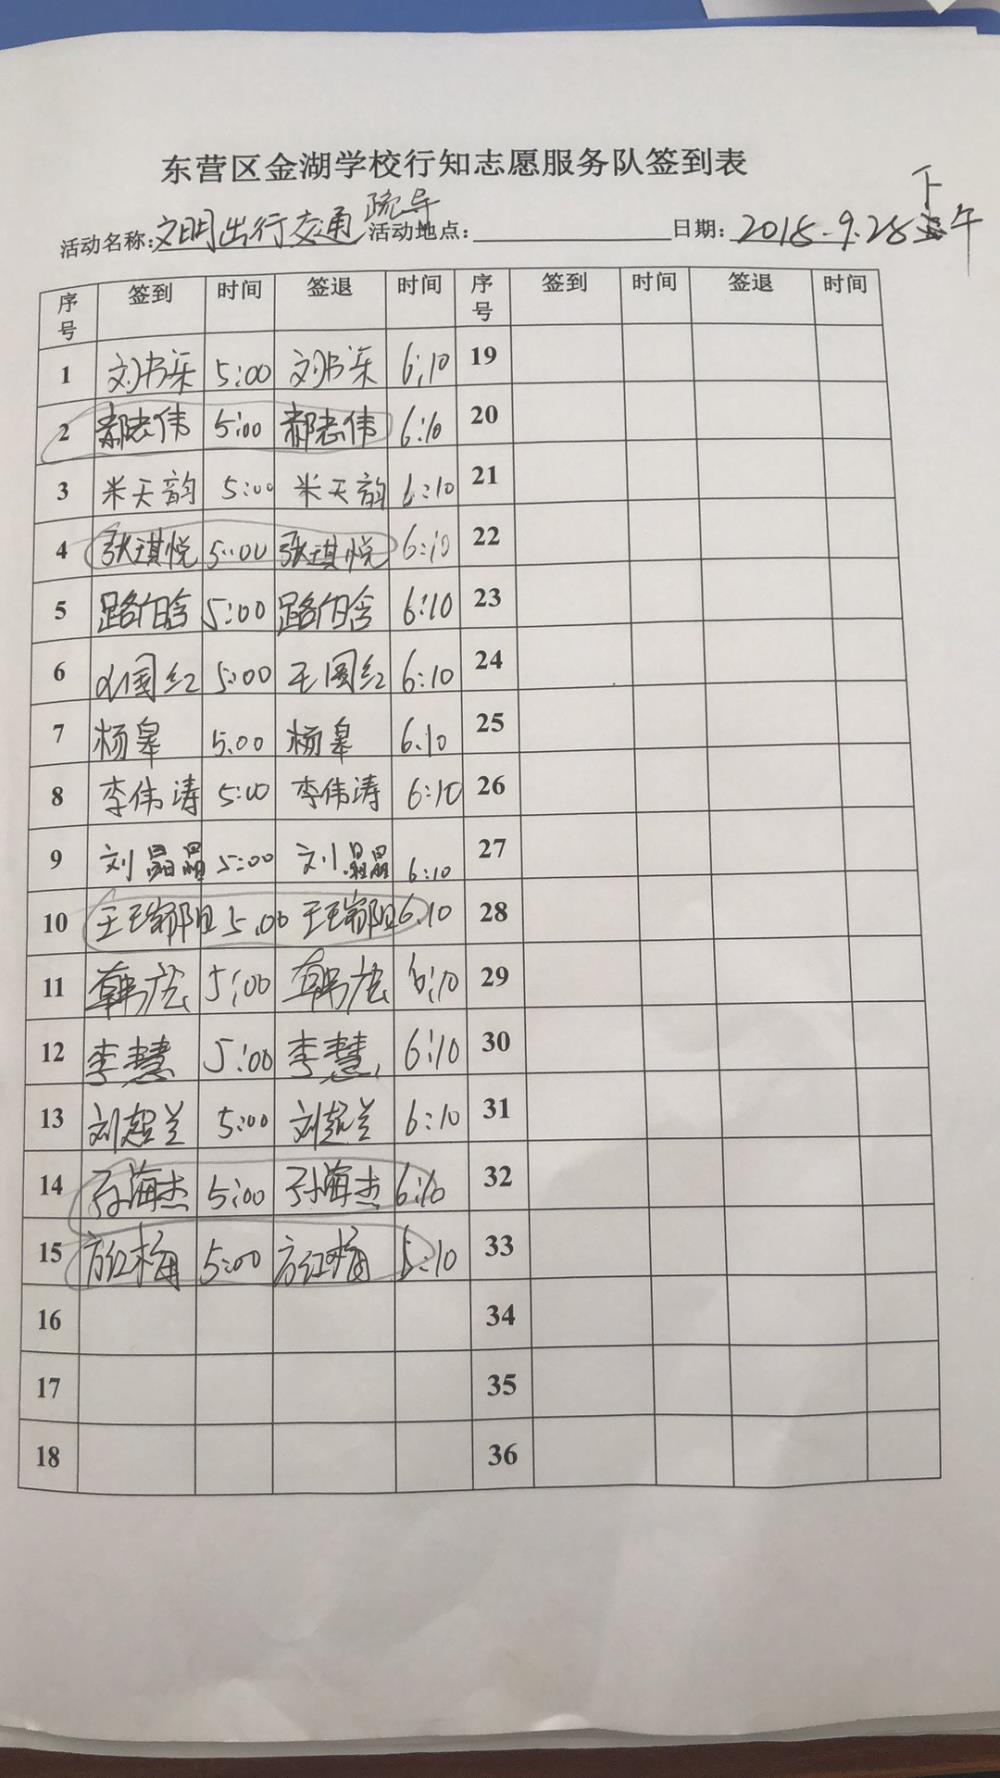 东营区金湖学校行知志愿服务队签到表
活动名称:文明出行交通疏导 活动地点: 日期: 2018.9.28 下午
序号 签到 时间 签退 时间 序号 签到 时间 签退 时间
1 刘书乐 5:00 刘书乐 6:10 19
2 郝志伟 5:00 郝志伟 6:10 20
3 米天韵 5:00 米天韵 6:10 21
4 张琪悦 5:00 张琪悦 6:10 22
5 5:00 6:10 23
6 国红 5:00 王国红 6:10 24
7 杨皋 5:00 杨皋 6.10 25
8 李伟涛 5:00 李伟涛 6:10 26
9 刘晶晶 5:00 刘晶晶 6:10 27
10 5.00 6.10 28
11 韩 5:00 韩 6:10 29
12 李慧 5:00 李慧 6:10 30
13 刘超兰 5:00 刘超兰 6:10 31
14 孙海杰 5:00 孙海杰 6:10 32
15 方红梅 5:00 方红梅 6:10 33
16 34
17 35
18 36